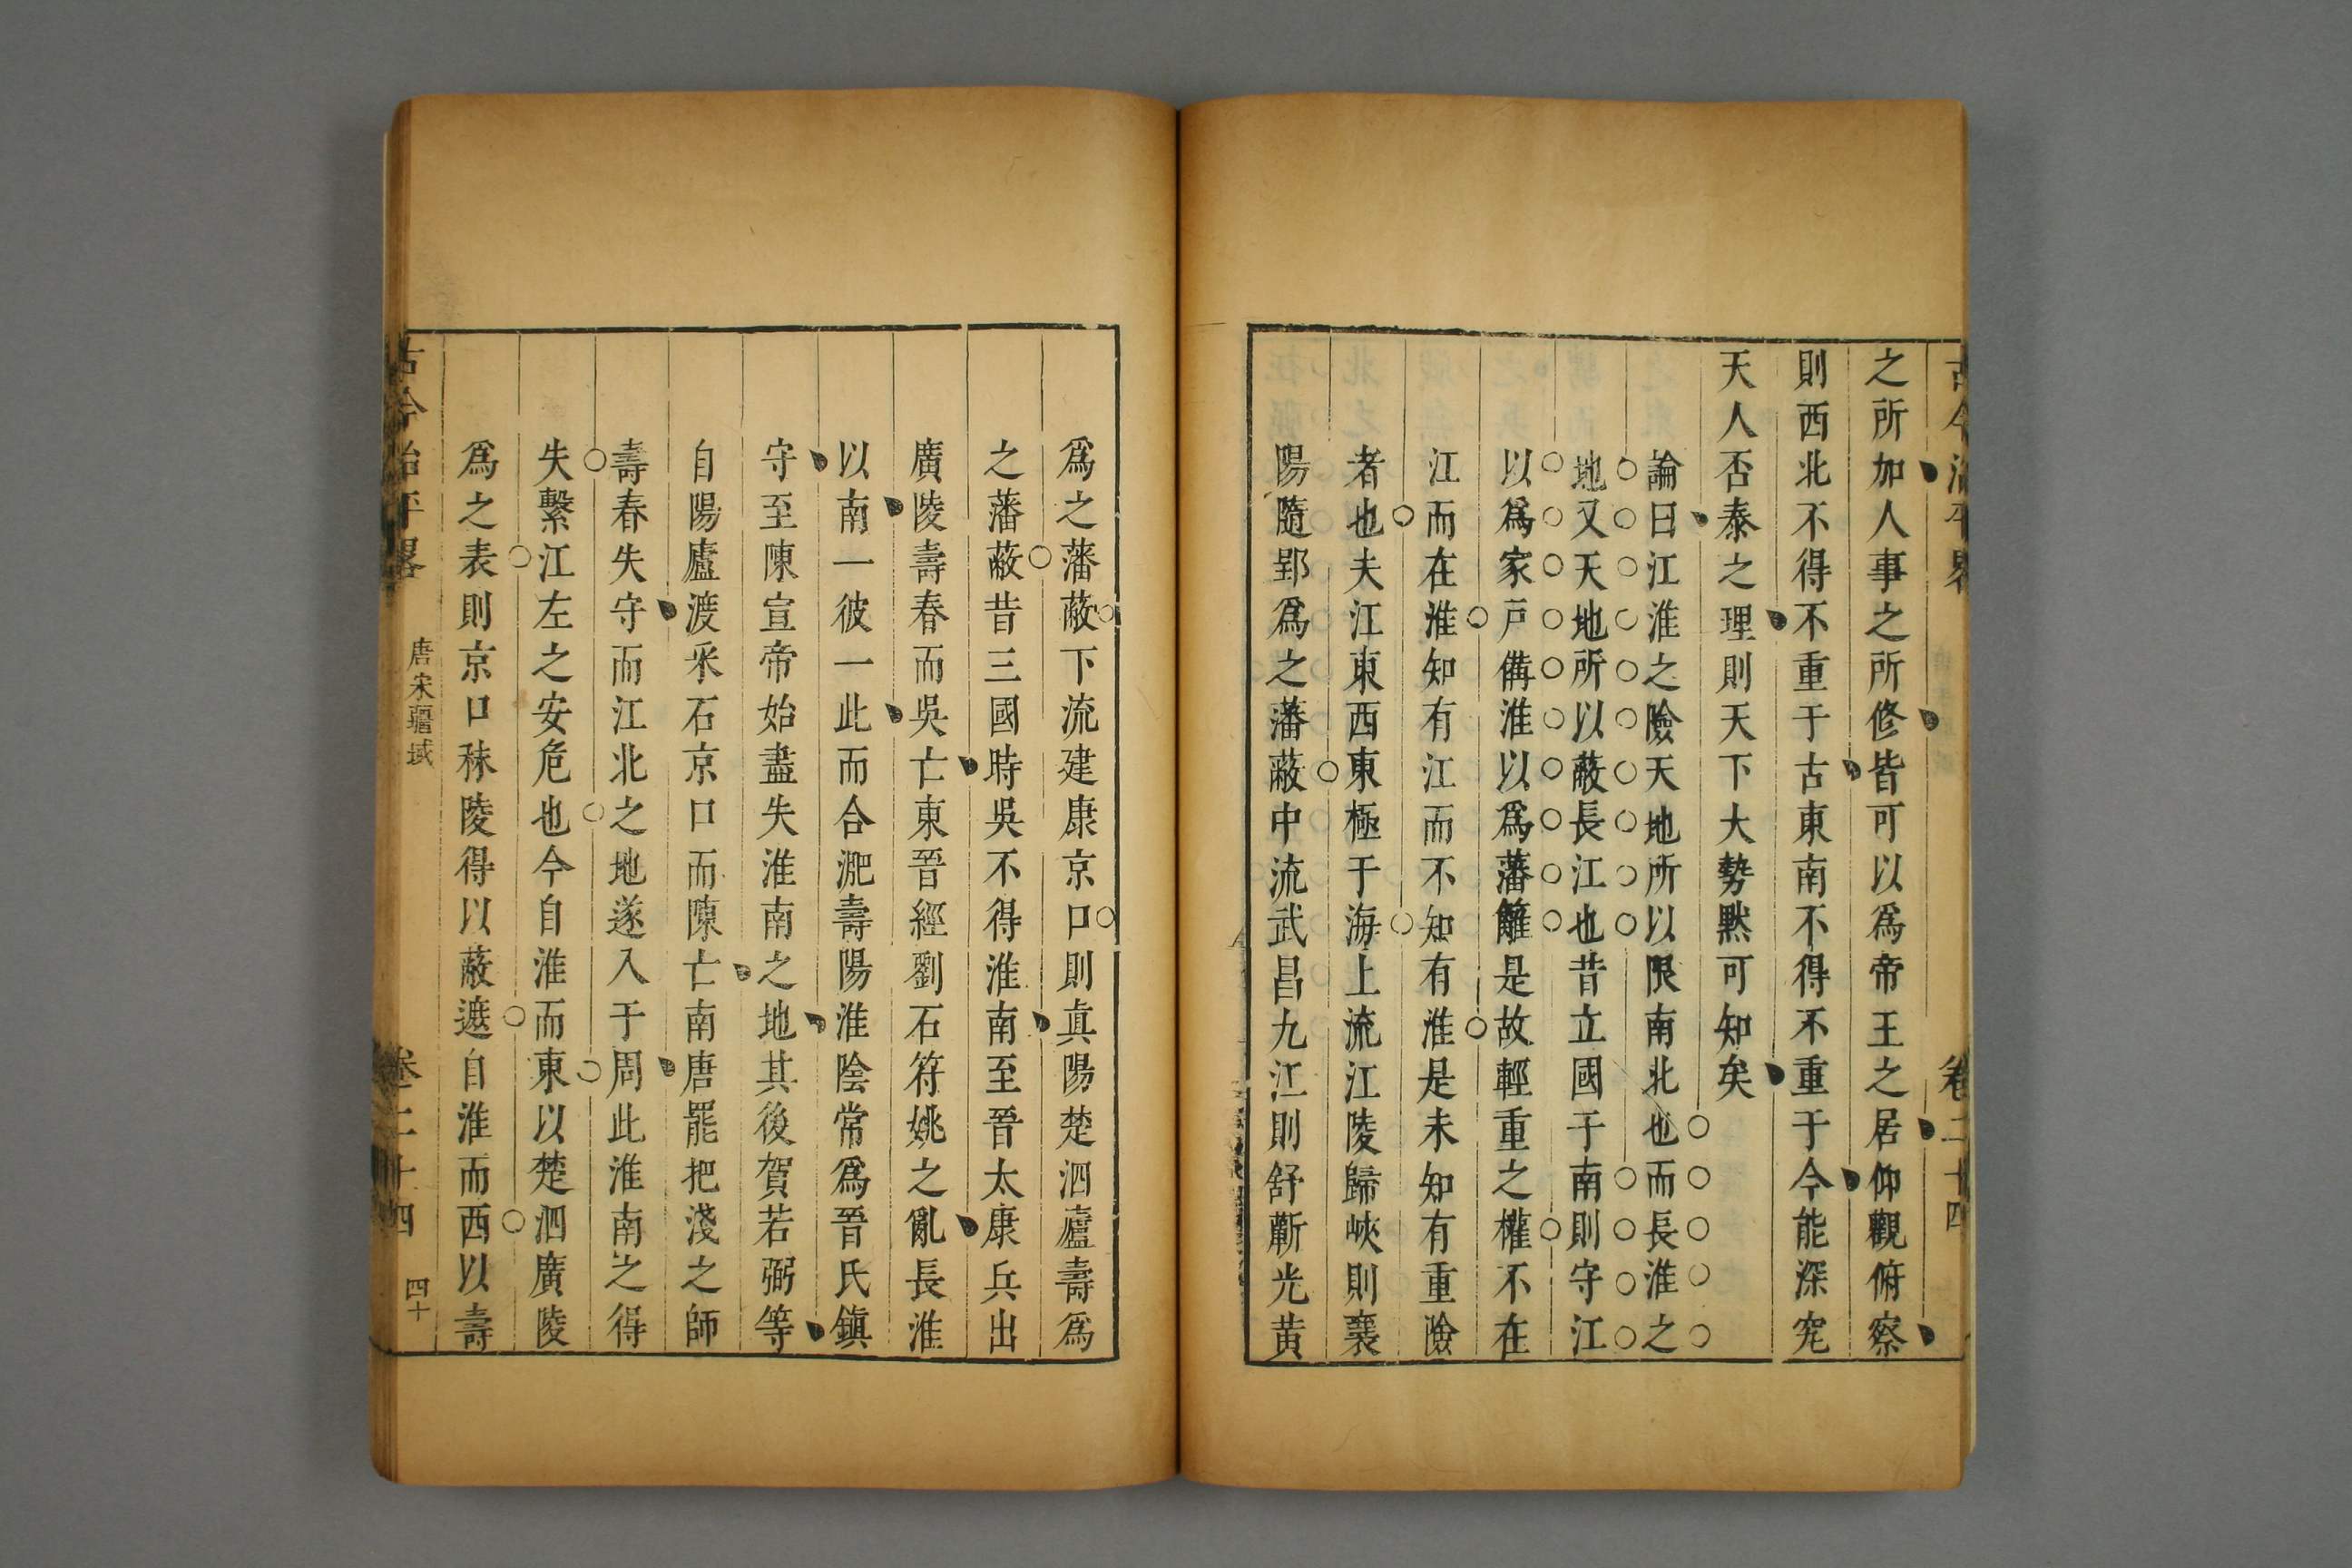 古今治平畧 卷二十四
之所加人事之所修皆可以爲帝王之居仰觀俯察
則西北不得不重于古東南不得不重于今能深究
天人否泰之理則天下大勢黙可知矣
論曰江淮之險天地所以限南北也而長淮之
地又天地所以蔽長江也昔立國于南則守江
以爲家戸備淮以爲藩籬是故輕重之權不在
江而在淮知有江而不知有淮是未知有重險
者也夫江東西東極于海上流江陵歸峽則襄
陽隨郢爲之藩蔽中流武昌九江則舒蘄光黄
爲之藩蔽下流建康京口則眞陽楚泗廬壽爲
之藩蔽昔三國時吳不得淮南至晉太康兵出
廣陵壽春而吳亡東晉經劉石符姚之亂長淮
以南一彼一此而合淝壽陽淮陰常爲晉氏鎮
守至陳宣帝始盡失淮南之地其後賀若弼等
自陽廬渡采石京口而陳亡南唐罷把淺之師
壽春失守而江北之地遂入于周此淮南之得
失繫江左之安危也今自淮而東以楚泗廣陵
爲之表則京口秣陵得以蔽遮自淮而西以壽
古今治平畧 唐宋疆域 卷二十四 四十